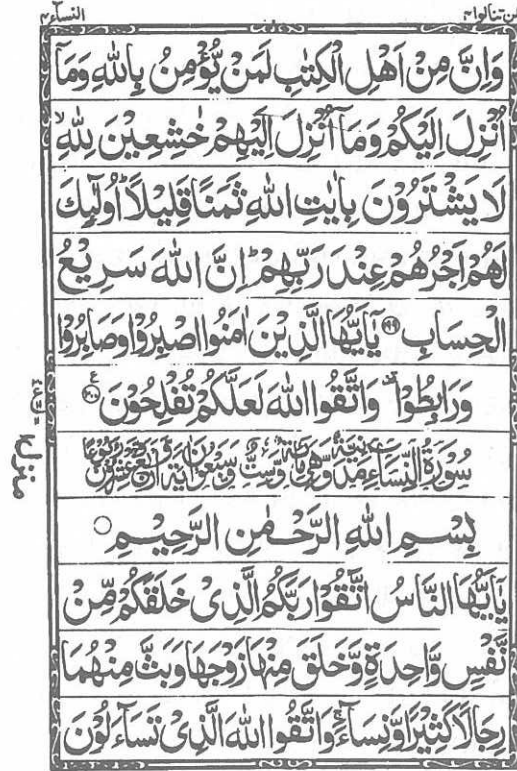 لن تنالوا ٤
النسآء ٤
وَاِنَّ مِنْ اَهْلِ الْكِتٰبِ لَمَنْ يُّؤْمِنُ بِاللّٰهِ وَمَآ
اُنْزِلَ اِلَيْكُمْ وَمَآ اُنْزِلَ اِلَيْهِمْ خٰشِعِيْنَ لِلّٰهِ ۙ
لَا يَشْتَرُوْنَ بِاٰيٰتِ اللّٰهِ ثَمَنًا قَلِيْلًا ؕ اُولٰٓئِكَ
لَهُمْ اَجْرُهُمْ عِنْدَ رَبِّهِمْ ؕ اِنَّ اللّٰهَ سَرِيْعُ
الْحِسَابِ ﴿۱۹۹﴾ يٰٓاَيُّهَا الَّذِيْنَ اٰمَنُوا اصْبِرُوْا وَصَابِرُوْا
وَرَابِطُوْا ۫ وَاتَّقُوا اللّٰهَ لَعَلَّكُمْ تُفْلِحُوْنَ ﴿۲۰۰﴾ ع
سُوْرَةُ النِّسَآءِ مَدَنِيَّةٌ وَّهِيَ مِائَةٌ وَّسِتٌّ وَّسَبْعُوْنَ اٰيَةً وَّاَرْبَعٌ وَّعِشْرُوْنَ رُكُوْعًا
بِسْمِ اللّٰهِ الرَّحْمٰنِ الرَّحِيْمِ ○
يٰٓاَيُّهَا النَّاسُ اتَّقُوْا رَبَّكُمُ الَّذِيْ خَلَقَكُمْ مِّنْ
نَّفْسٍ وَّاحِدَةٍ وَّخَلَقَ مِنْهَا زَوْجَهَا وَبَثَّ مِنْهُمَا
رِجَالًا كَثِيْرًا وَّنِسَآءً ۚ وَاتَّقُوا اللّٰهَ الَّذِيْ تَسَآءَلُوْنَ
منزل ۱